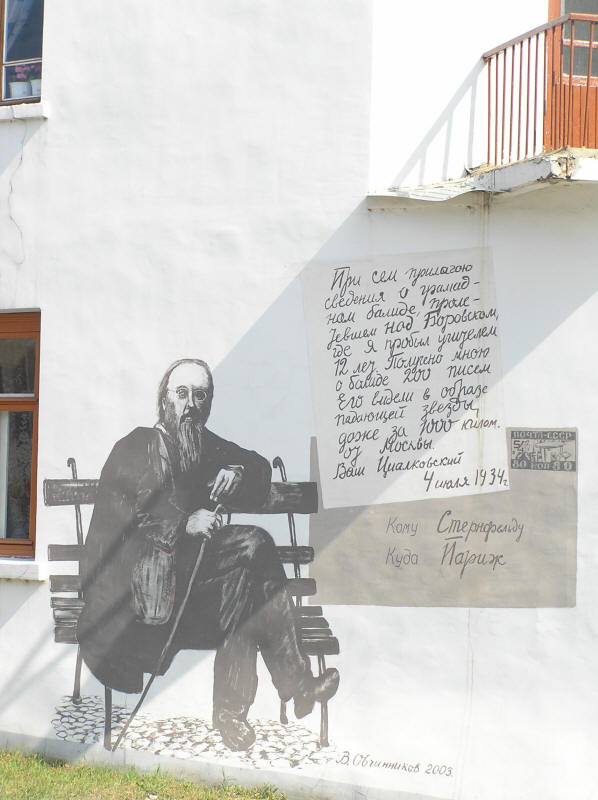 При сем прилагаю
сведения о громад-
ном болиде, проле-
тевшем над Боровском,
где я пробыл учителем
12 лет. Получено мною
о болиде 200 писем
Его видели в образе
падающей звезды
даже за 1000 килом.
от Москвы.
Ваш Циалковский
4 июля 1934г.
ПОЧТА-СССР
80 КОП 80
Кому Стернфельду
Куда Париж
В. Овчинников 2003.